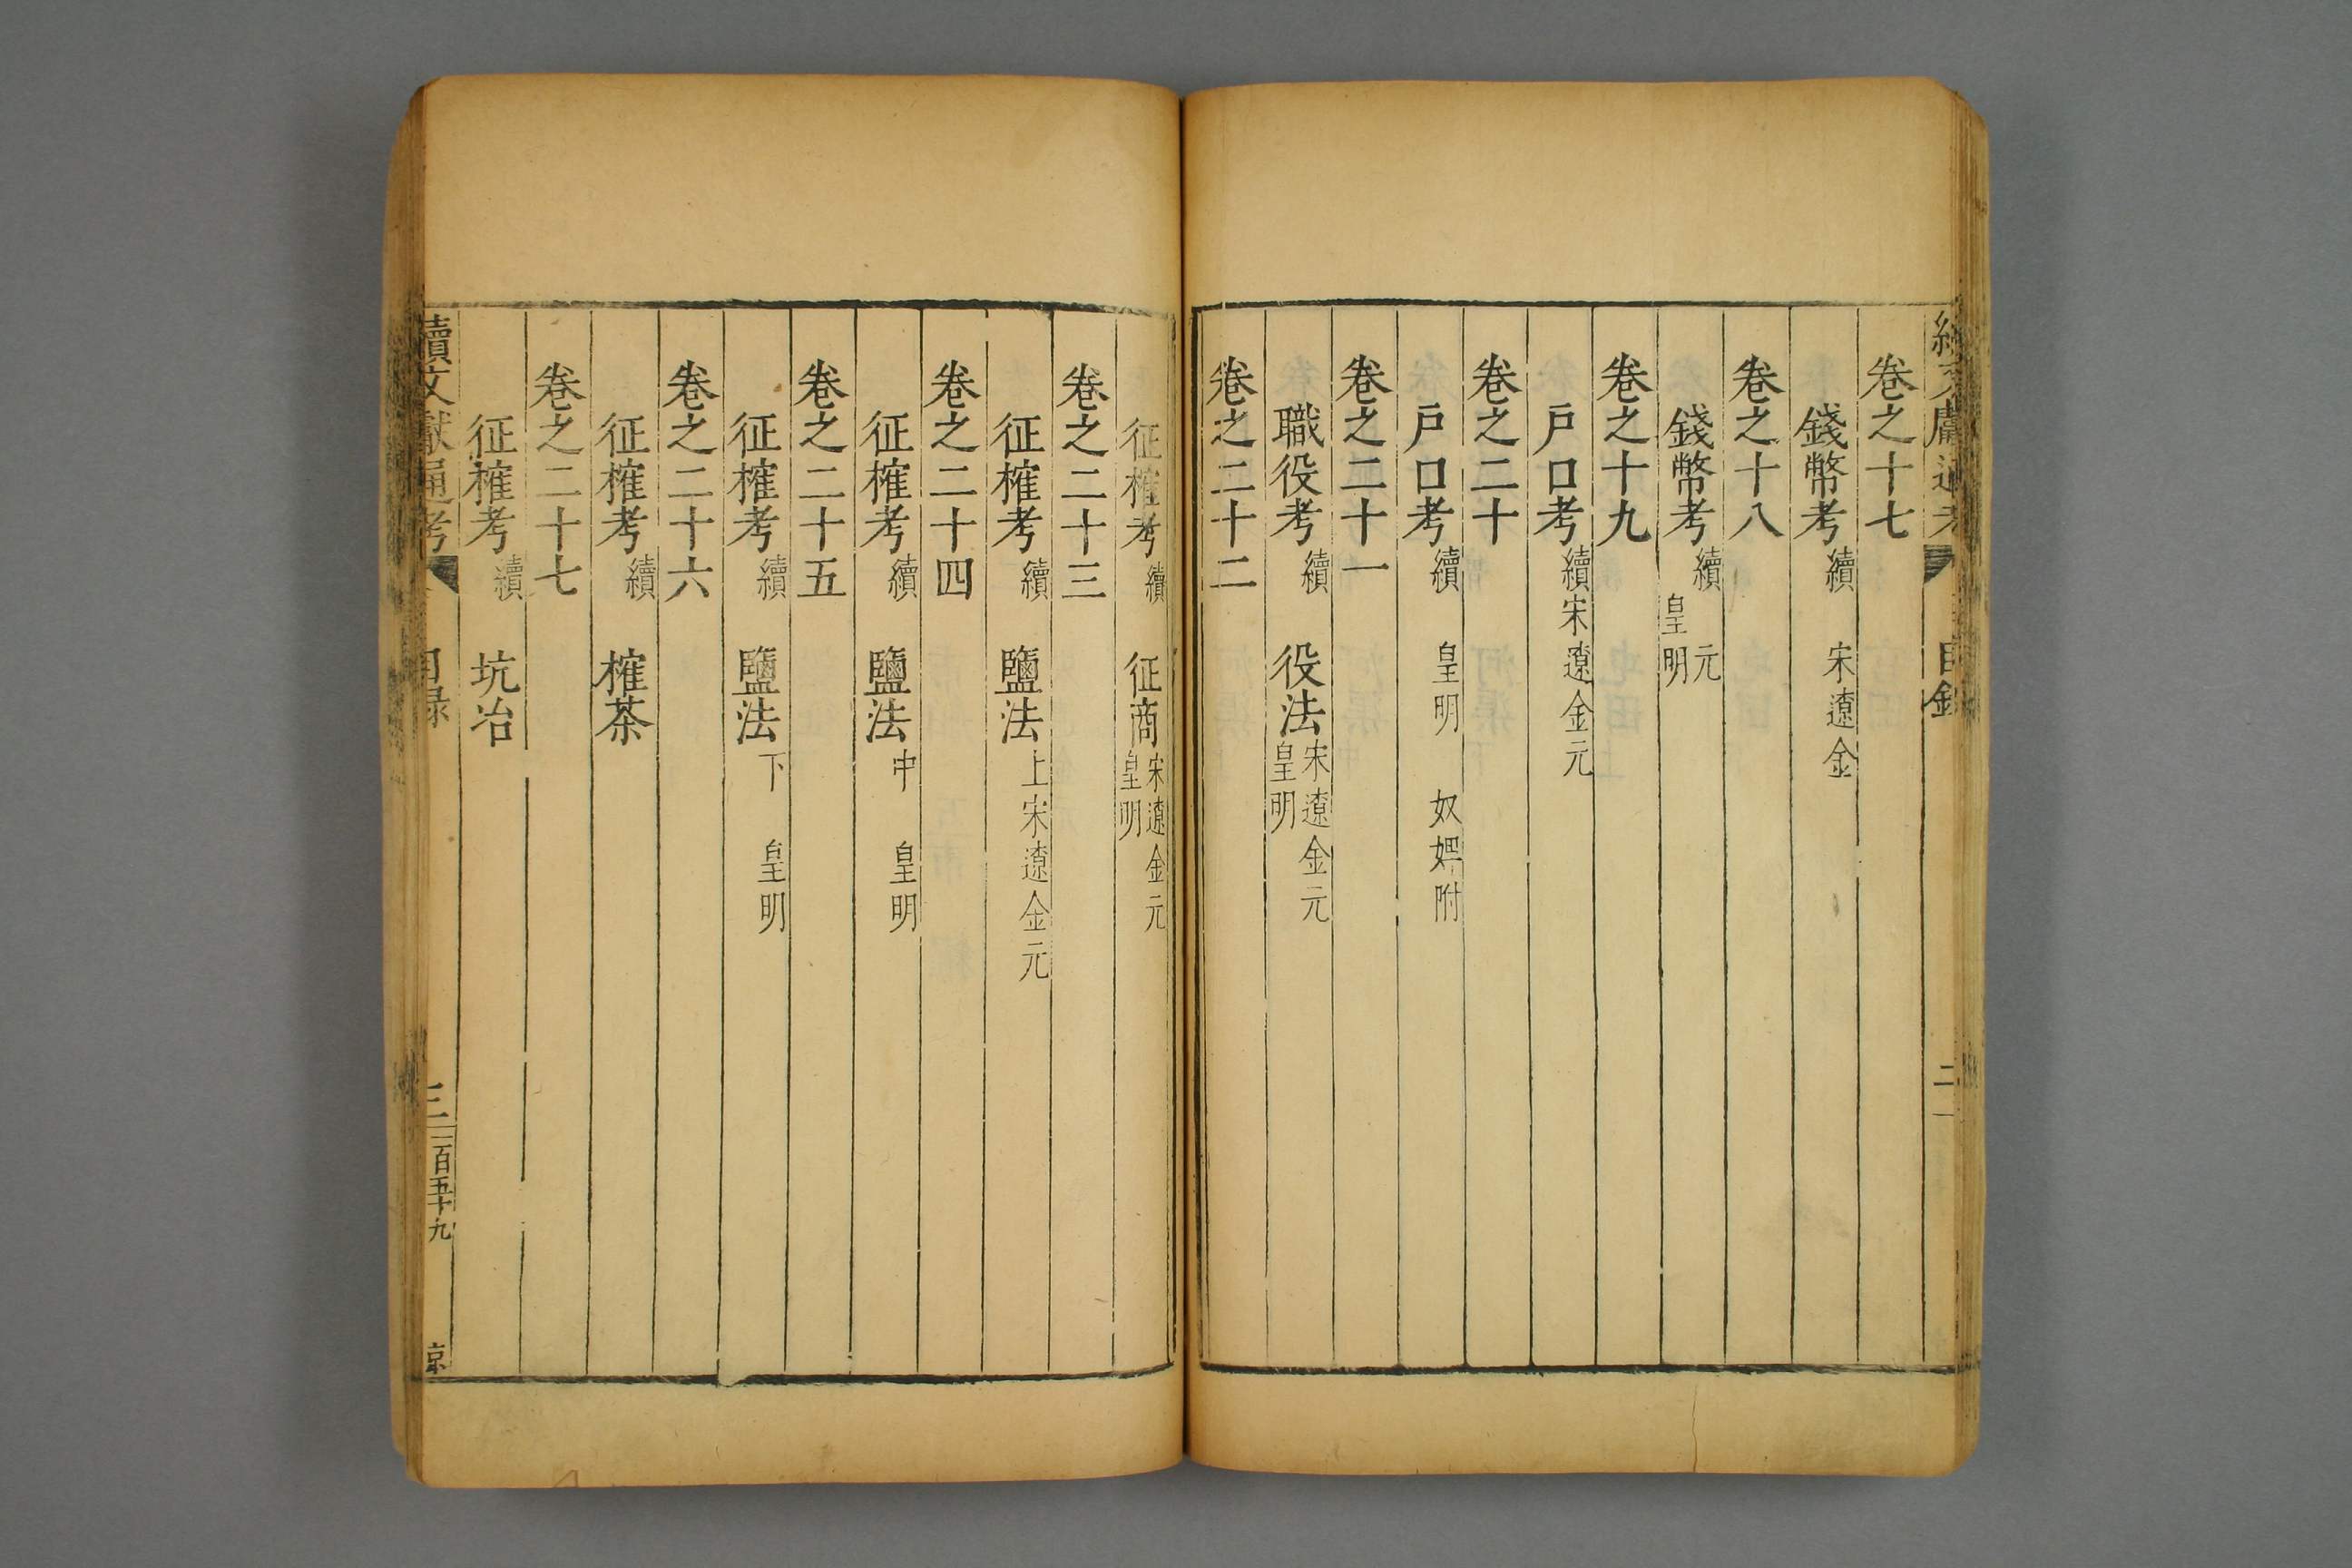 續文獻通考 目錄 二
卷之十七
錢幣考續 宋遼金
卷之十八
錢幣考續 元皇明
卷之十九
戶口考續宋遼金元
卷之二十
戶口考續 皇明 奴婢附
卷之二十一
職役考續 役法宋遼金元皇明
卷之二十二
征榷考續 征商宋遼金元皇明
卷之二十三
征榷考續 鹽法上宋遼金元
卷之二十四
征榷考續 鹽法中 皇明
卷之二十五
征榷考續 鹽法下 皇明
卷之二十六
征榷考續 榷茶
卷之二十七
征榷考續 坑冶
續文獻通考 目録 三 二百五十九